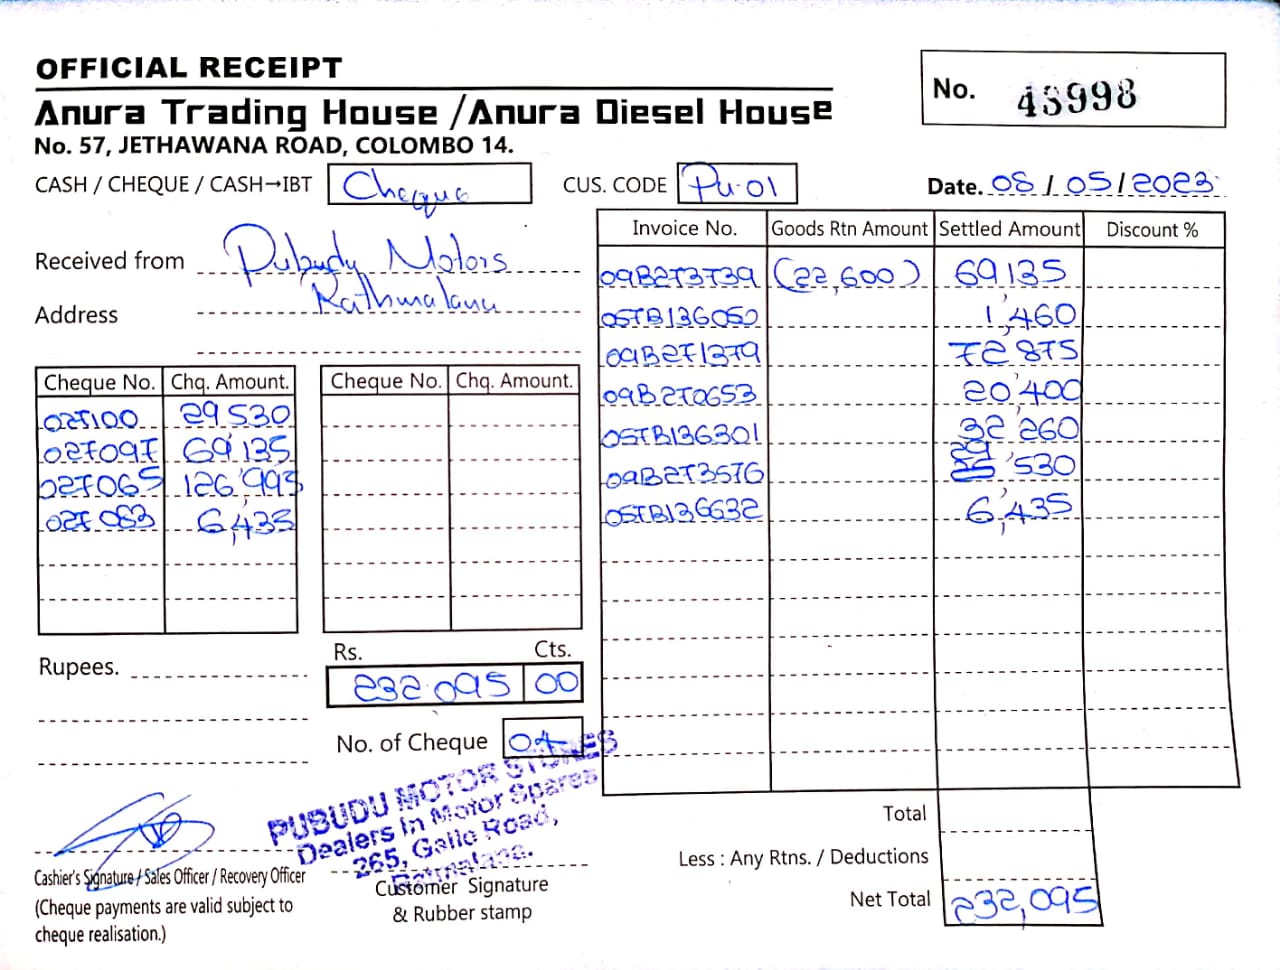 OFFICIAL RECEIPT
No. 45998
Anura Trading House / Anura Diesel House
No. 57, JETHAWANA ROAD, COLOMBO 14.
CASH / CHEQUE / CASH→IBT Cheque CUS. CODE Pu-01 Date. 08/05/2023
Received from Pubudu Motors
Address Rathmalana
Invoice No. Goods Rtn Amount Settled Amount Discount %
09B273739 (22,600) 69,135
05TB136050 1,460
09B271379 72,875
09B270653 20,400
05TB136301 32,260
09B273576 29,530
05TB136632 6,435
Cheque No. Chq. Amount. Cheque No. Chq. Amount.
027100 29,530
027097 69,135
027065 126,995
027083 6,435
Rupees.
Rs. Cts.
232,095 00
No. of Cheque 04
PUBUDU MOTOR STORES
Dealers in Motor Spares
265, Galle Road,
Ratmalana.
Cashier's Signature / Sales Officer / Recovery Officer
(Cheque payments are valid subject to
cheque realisation.)
Customer Signature
& Rubber stamp
Total
Less : Any Rtns. / Deductions
Net Total 232,095